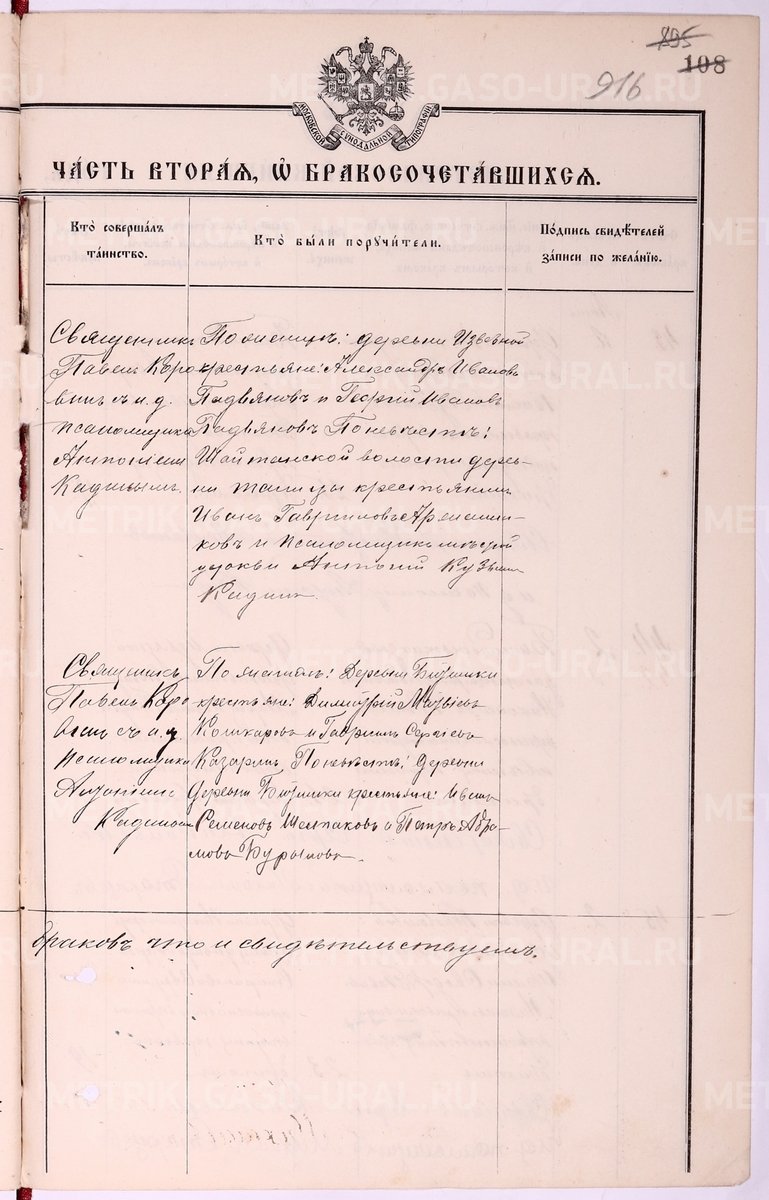 895
108
916
МОСКОВСКОЙ СѴНОДАЛЬНОЙ ТИПОГРАФІИ
ЧА́СТЬ ВТОРА́Я, Ѡ҆ БРАКОСОЧЕТА́ВШИХСЯ.
Кто̀ соверша́лъ та́инство.
Кто̀ бы́ли поручи́тели.
По́дпись свидѣ́телей за́писи по жела́нїю.
Священникъ
Павелъ Коро
винъ съ и. д.
псаломщика
Антоніемъ
Кадинымъ.
По женихѣ: деревни
крестьяне: Александръ Ивановъ
и Георгій Ивановъ
По невѣстѣ:
Шайтанской волости дерев-
ни Талицы крестьянинъ
Иванъ Гаврииловъ
ковъ и псаломщикъ
церкви Антоній Кузьмин
Кадинъ.
Священникъ
Павелъ Коро
винъ съ и. д.
псаломщика
Антоніемъ
Кадинымъ
По женихѣ: Деревни
крестьяне: Димитрій
Кошкаровъ и Гавріилъ Сергіевъ
Казаринъ По невѣстѣ: Деревни
Деревни крестьяне: Иванъ
Семеновъ Шестаковъ и Петръ Абра-
мовъ Бурыловъ.
браковъ что и свидѣтельствуемъ.
METRIKI.GASO-URAL.RU